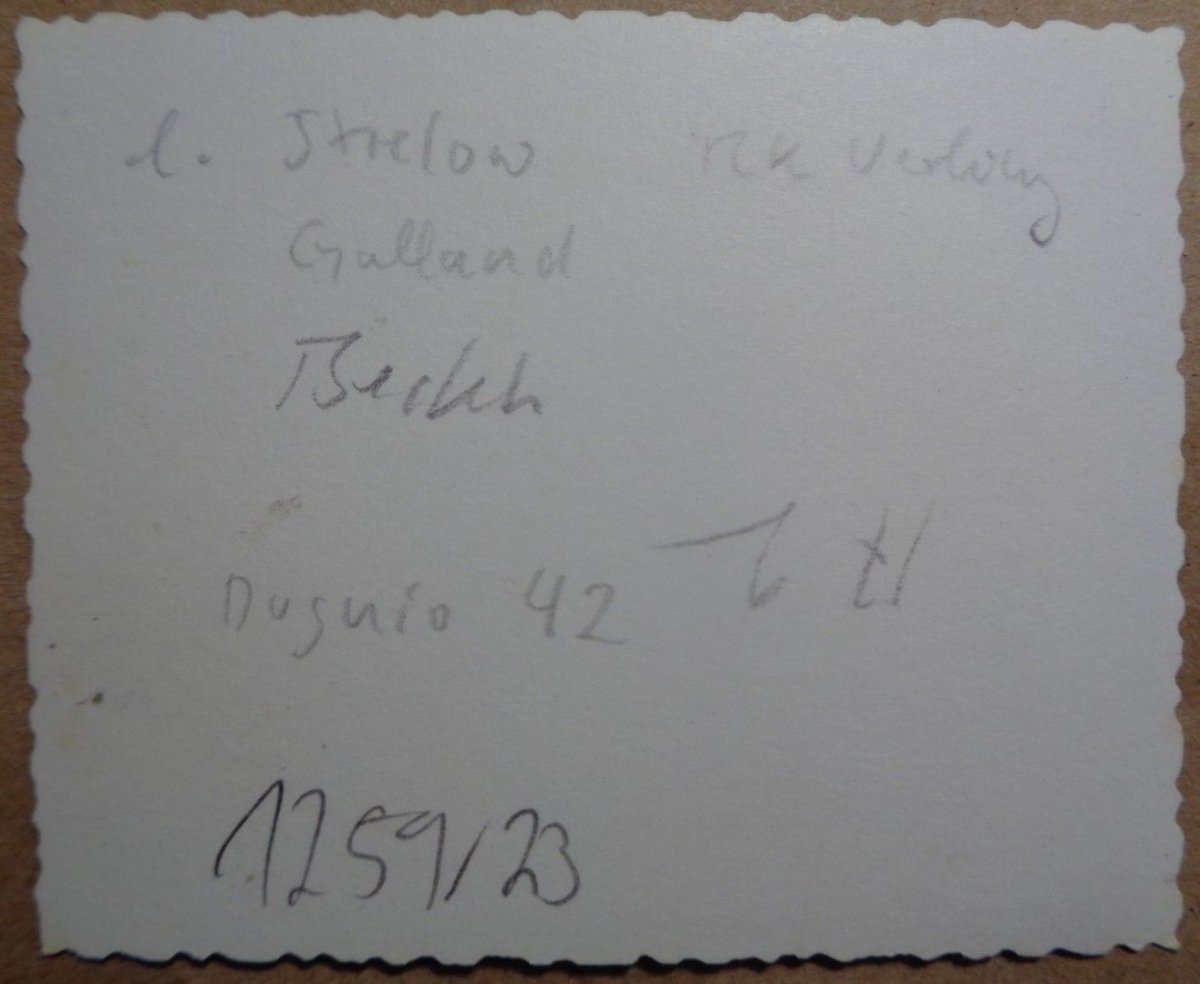 l. Strelow RK Verleihung
Galland
Beckh
Dugnio 42
1259/23